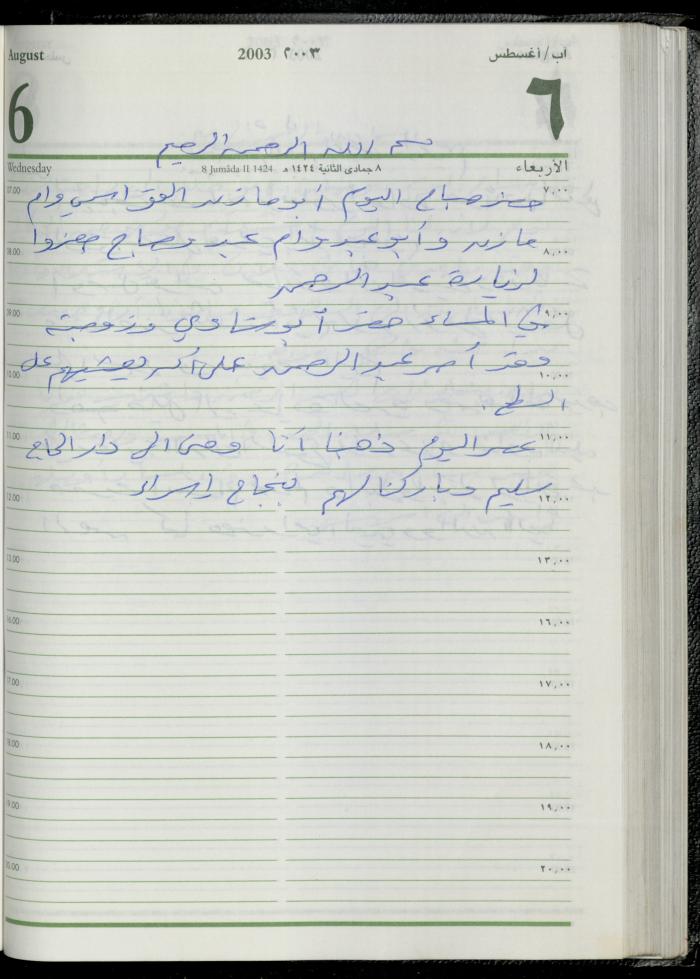 August 2003 ٢٠٠٣ آب/أغسطس
6 ٦
بسم الله الرحمن الرحيم
Wednesday 8 Jumâda II 1424 ٨ جمادى الثانية ١٤٢٤ هـ الأربعاء
07.00 ٧,٠٠
حضر صباح اليوم أبو مازن وام
مازن وأبو عبد وام عبد حضروا
08.00 ٨,٠٠
لزيارة عبد الرحمن
09.00 ٩,٠٠
في المساء حضر أبو شاوي وزوجته
وقد أصر عبد الرحمن على أن يعشيهم على
10.00 ١٠,٠٠
السطح.
11.00 ١١,٠٠
عصر اليوم ذهبنا أنا الى دار الحاج
سليم وباركنا لهم بنجاح إسراء
12.00 ١٢,٠٠
13.00 ١٣,٠٠
16.00 ١٦,٠٠
17.00 ١٧,٠٠
18.00 ١٨,٠٠
19.00 ١٩,٠٠
20.00 ٢٠,٠٠